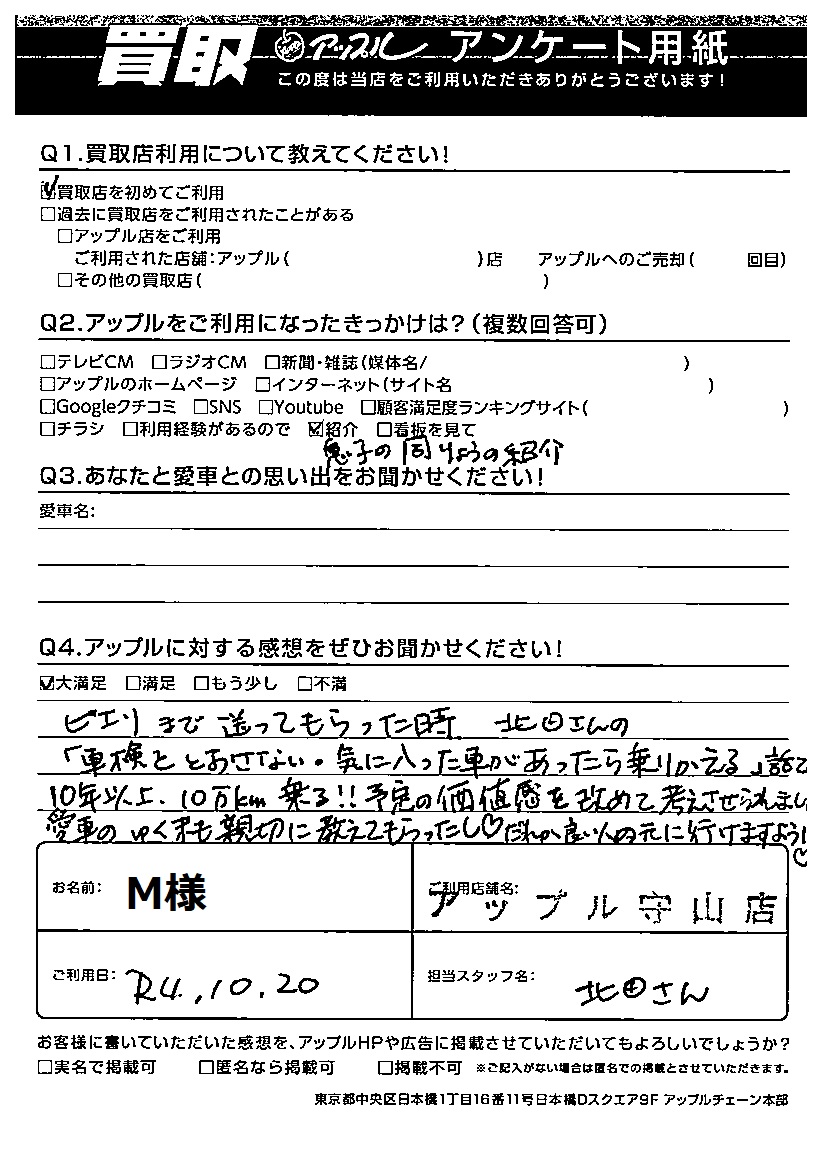 買取 アップル アンケート用紙
この度は当店をご利用いただきありがとうございます!
Q1.買取店利用について教えてください!
☑買取店を初めてご利用
□過去に買取店をご利用されたことがある
□アップル店をご利用
ご利用された店舗:アップル( )店 アップルへのご売却( 回目)
□その他の買取店( )
Q2.アップルをご利用になったきっかけは?(複数回答可)
□テレビCM □ラジオCM □新聞・雑誌(媒体名/ )
□アップルのホームページ □インターネット(サイト名 )
□Googleクチコミ □SNS □Youtube □顧客満足度ランキングサイト( )
□チラシ □利用経験があるので ☑紹介 □看板を見て
息子の同りょうの紹介
Q3.あなたと愛車との思い出をお聞かせください!
愛車名:
Q4.アップルに対する感想をぜひお聞かせください!
☑大満足 □満足 □もう少し □不満
ピエリまで送ってもらった時 北田さんの
「車検をとおさない。気に入った車があったら乗りかえる」話で
10年以上、10万km乗る!!予定の価値感を改めて考えさせられまし
愛車のゆく末も親切に教えてもらったし♡だれか良い人の元に行けますように
♡
お名前: M様
ご利用店舗名: アップル守山店
ご利用日: R4.10.20
担当スタッフ名: 北田さん
お客様に書いていただいた感想を、アップルHPや広告に掲載させていただいてもよろしいでしょうか?
□実名で掲載可 □匿名なら掲載可 □掲載不可 ※ご記入がない場合は匿名での掲載とさせていただきます。
東京都中央区日本橋1丁目16番11号日本橋Dスクエア9F アップルチェーン本部